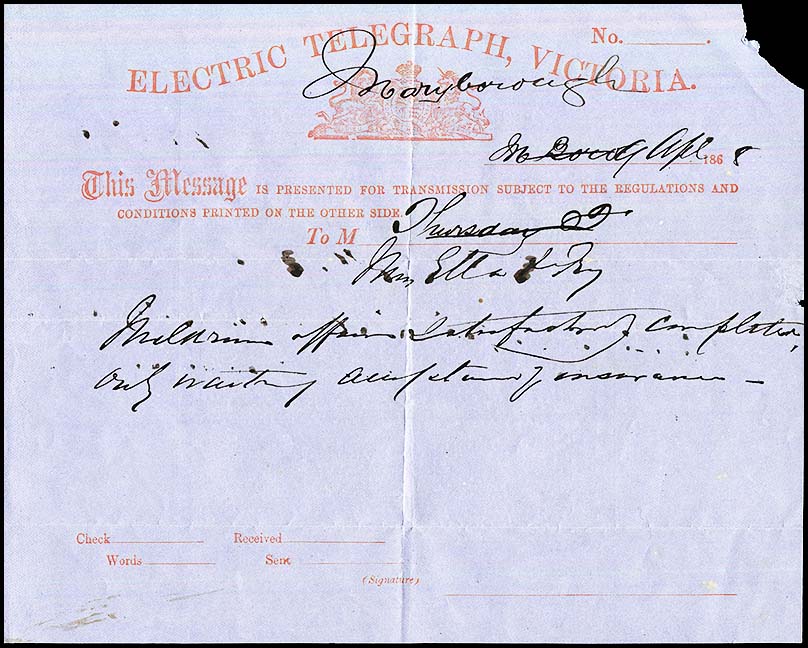 No.
ELECTRIC TELEGRAPH, VICTORIA.
Maryborough
Apl 1868
This Message IS PRESENTED FOR TRANSMISSION SUBJECT TO THE REGULATIONS AND
CONDITIONS PRINTED ON THE OTHER SIDE.
Thursday
To M
affair satisfactorily completed,
only waiting acceptance of insurance —
Check Received
Words Sent
(Signature)